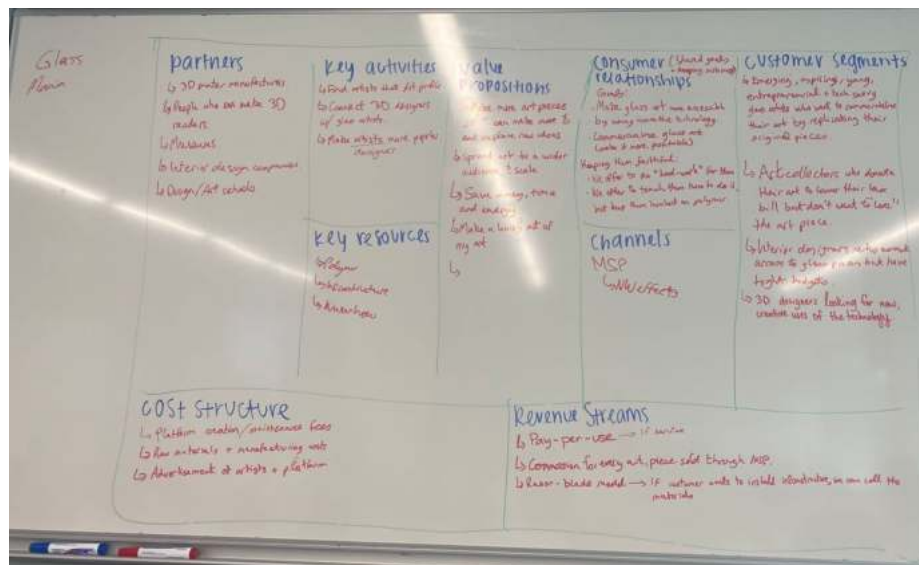 Glass
partners
↳ 3D printer manufacturers
↳ People who can make 3D
renders.
↳ Museums
↳ Interior design companies
↳ Design/Art schools
key activities
↳ Find artists that fit profile
↳ Connect 3D designers
w/ glass artists
↳ Make artists more popular
designer
key resources
↳ Polymer
↳ Infrastructure
Value
propositions
more art pieces
can make more $
and explore new ideas
↳ Spread art to a wider
audience, scale
↳ Save money, time
and energy
↳ Make a living out of
my art
↳
Consumer (shared goals
relationships
Goals:
Make glass art more accessible
by using innovative technology
Commercialize glass art
(make it more profitable)
Keeping them faithful:
• We offer to do "hard-work" for them
• We offer to teach them how to do it,
but keep them hooked on polymer
Channels
MSP
↳ NW effects
Customer segments
↳ Emerging, aspiring, young,
entrepreneurial + tech savvy
glass artists who want to commercialize
their art by replicating their
original pieces.
↳ Art collectors who donate
their art to lower their tax
bill but don't want to "lose"
the art piece.
↳ Interior designers
access to glass pieces but have
tight budgets
↳ 3D designers looking for new,
creative uses of the technology
Cost structure
↳ Platform creation/maintenance fees
↳ Raw materials + manufacturing costs
↳ Advertisement of artists + platform
Revenue Streams
↳ Pay-per-use → if service
↳ Commission for every art piece sold through MSP.
↳ Razor-blade model → if customer wants to install infrastructure, we can sell the
materials